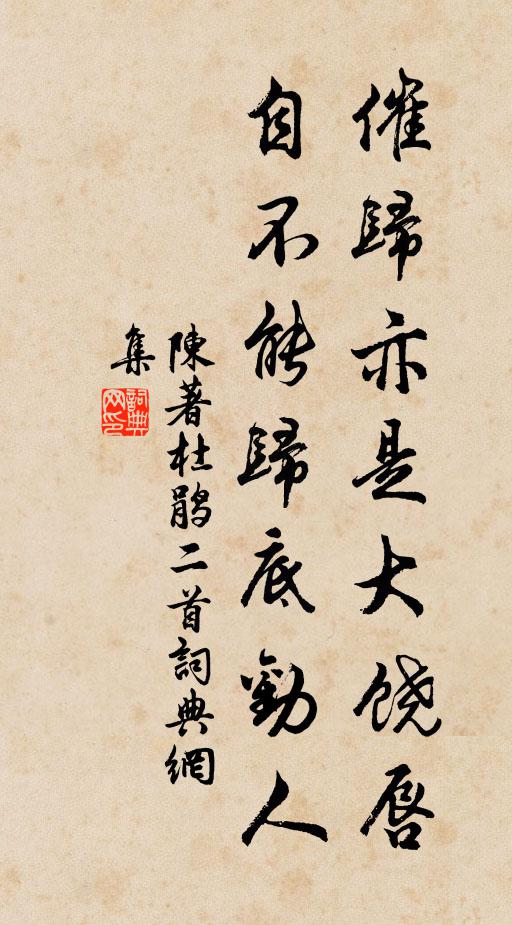 催歸亦是大饶唇
自不能歸底勸人
陳著杜鹃二首詞典網
集
詞典网印